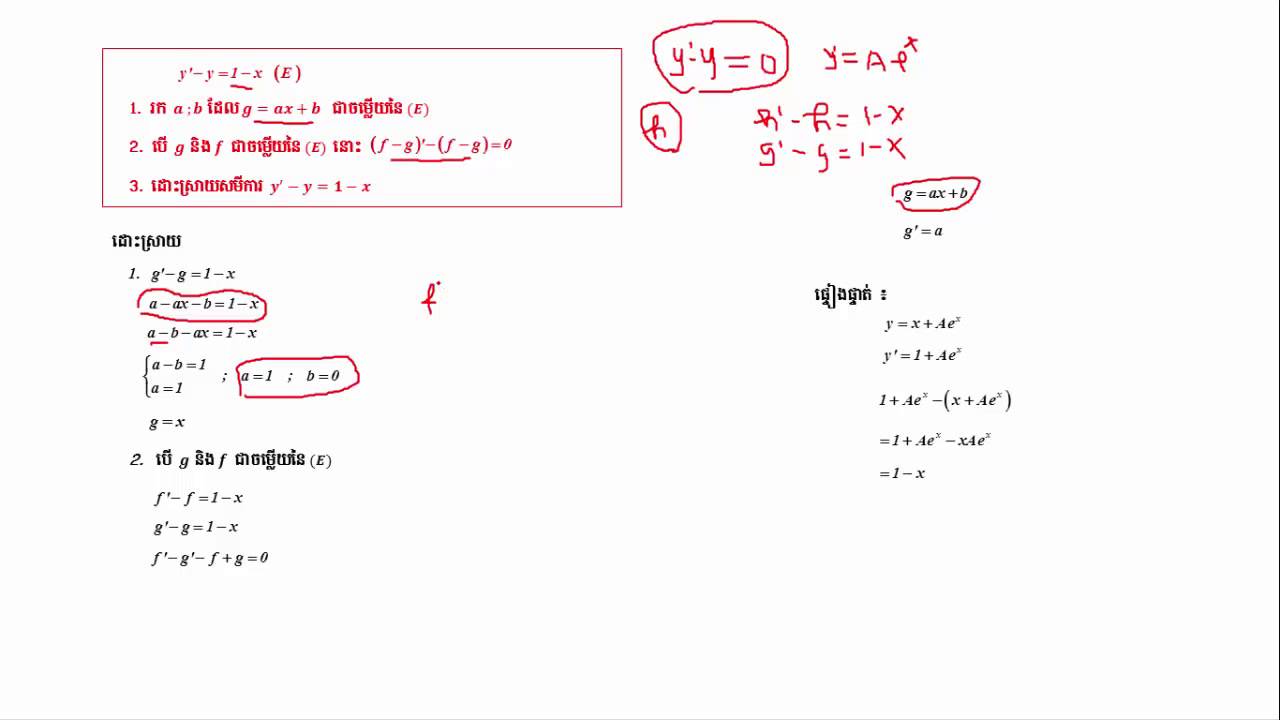 y′ − y = 1 − x (E)
1. រក a ; b ដែល g = ax + b ជាចម្លើយនៃ (E)
2. បើ g និង f ជាចម្លើយនៃ (E) នោះ (f − g)′ − (f − g) = 0
3. ដោះស្រាយសមីការ y′ − y = 1 − x
ដោះស្រាយ
1. g′ − g = 1 − x
a − ax − b = 1 − x
a − b − ax = 1 − x
{a − b = 1
a = 1 ; a = 1 ; b = 0
g = x
2. បើ g និង f ជាចម្លើយនៃ (E)
f′ − f = 1 − x
g′ − g = 1 − x
f′ − g′ − f + g = 0
f
y′ − y = 0 y = Aeˣ
h h′ − h = 1 − x
g′ − g = 1 − x
g = ax + b
g′ = a
ផ្ទៀងផ្ទាត់ ៖
y = x + Aeˣ
y′ = 1 + Aeˣ
1 + Aeˣ − (x + Aeˣ)
= 1 + Aeˣ − xAeˣ
= 1 − x